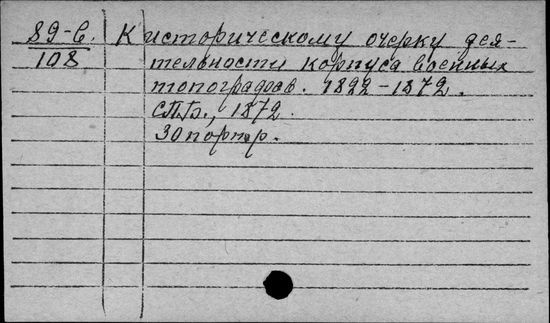 89-6.
108
К историческому очерку дея-
тельности корпуса военных
топографов. 1822-1872.
СПб., 1872.
30 портр.